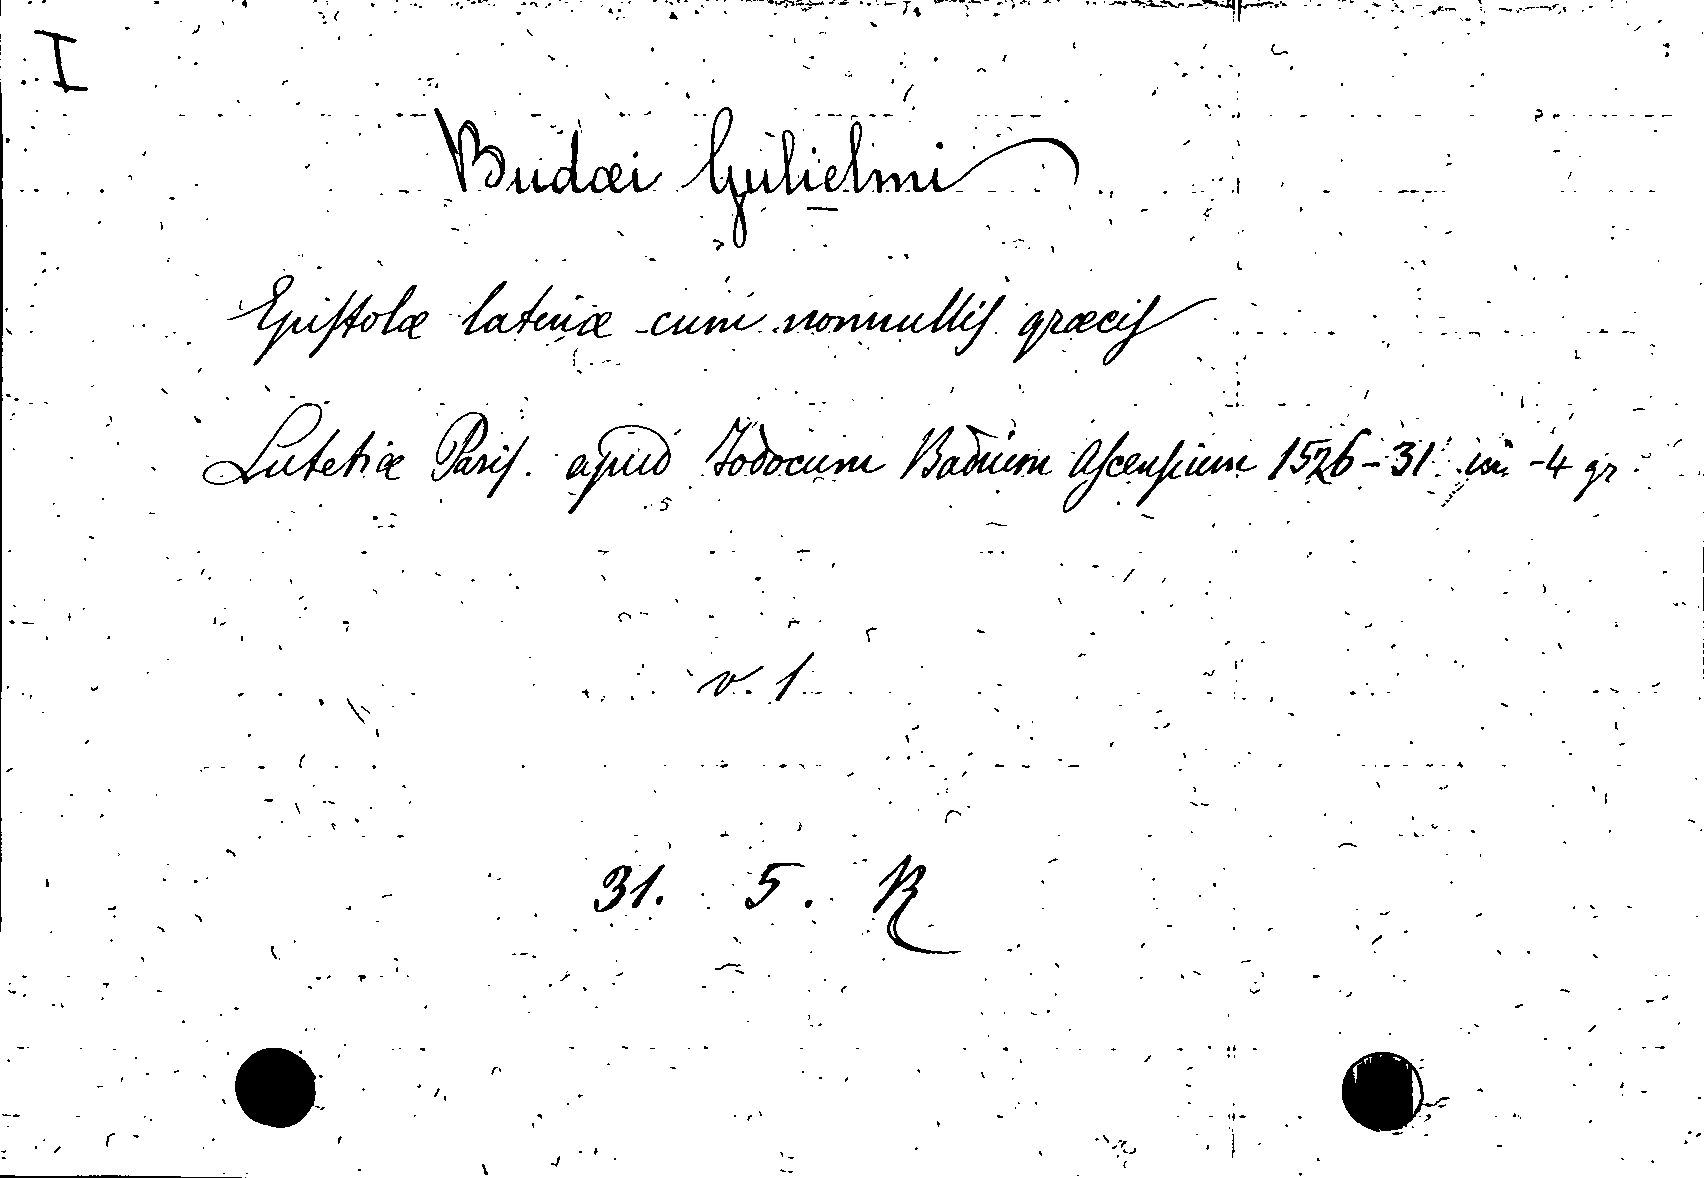 I
Budæi Gulielmi
Epistolæ latinæ cum nonnullis græcis
Lutetiæ Paris. apud Jodocum Badium Ascensium 1526-31 in-4 gr
v. 1
31. 5. R